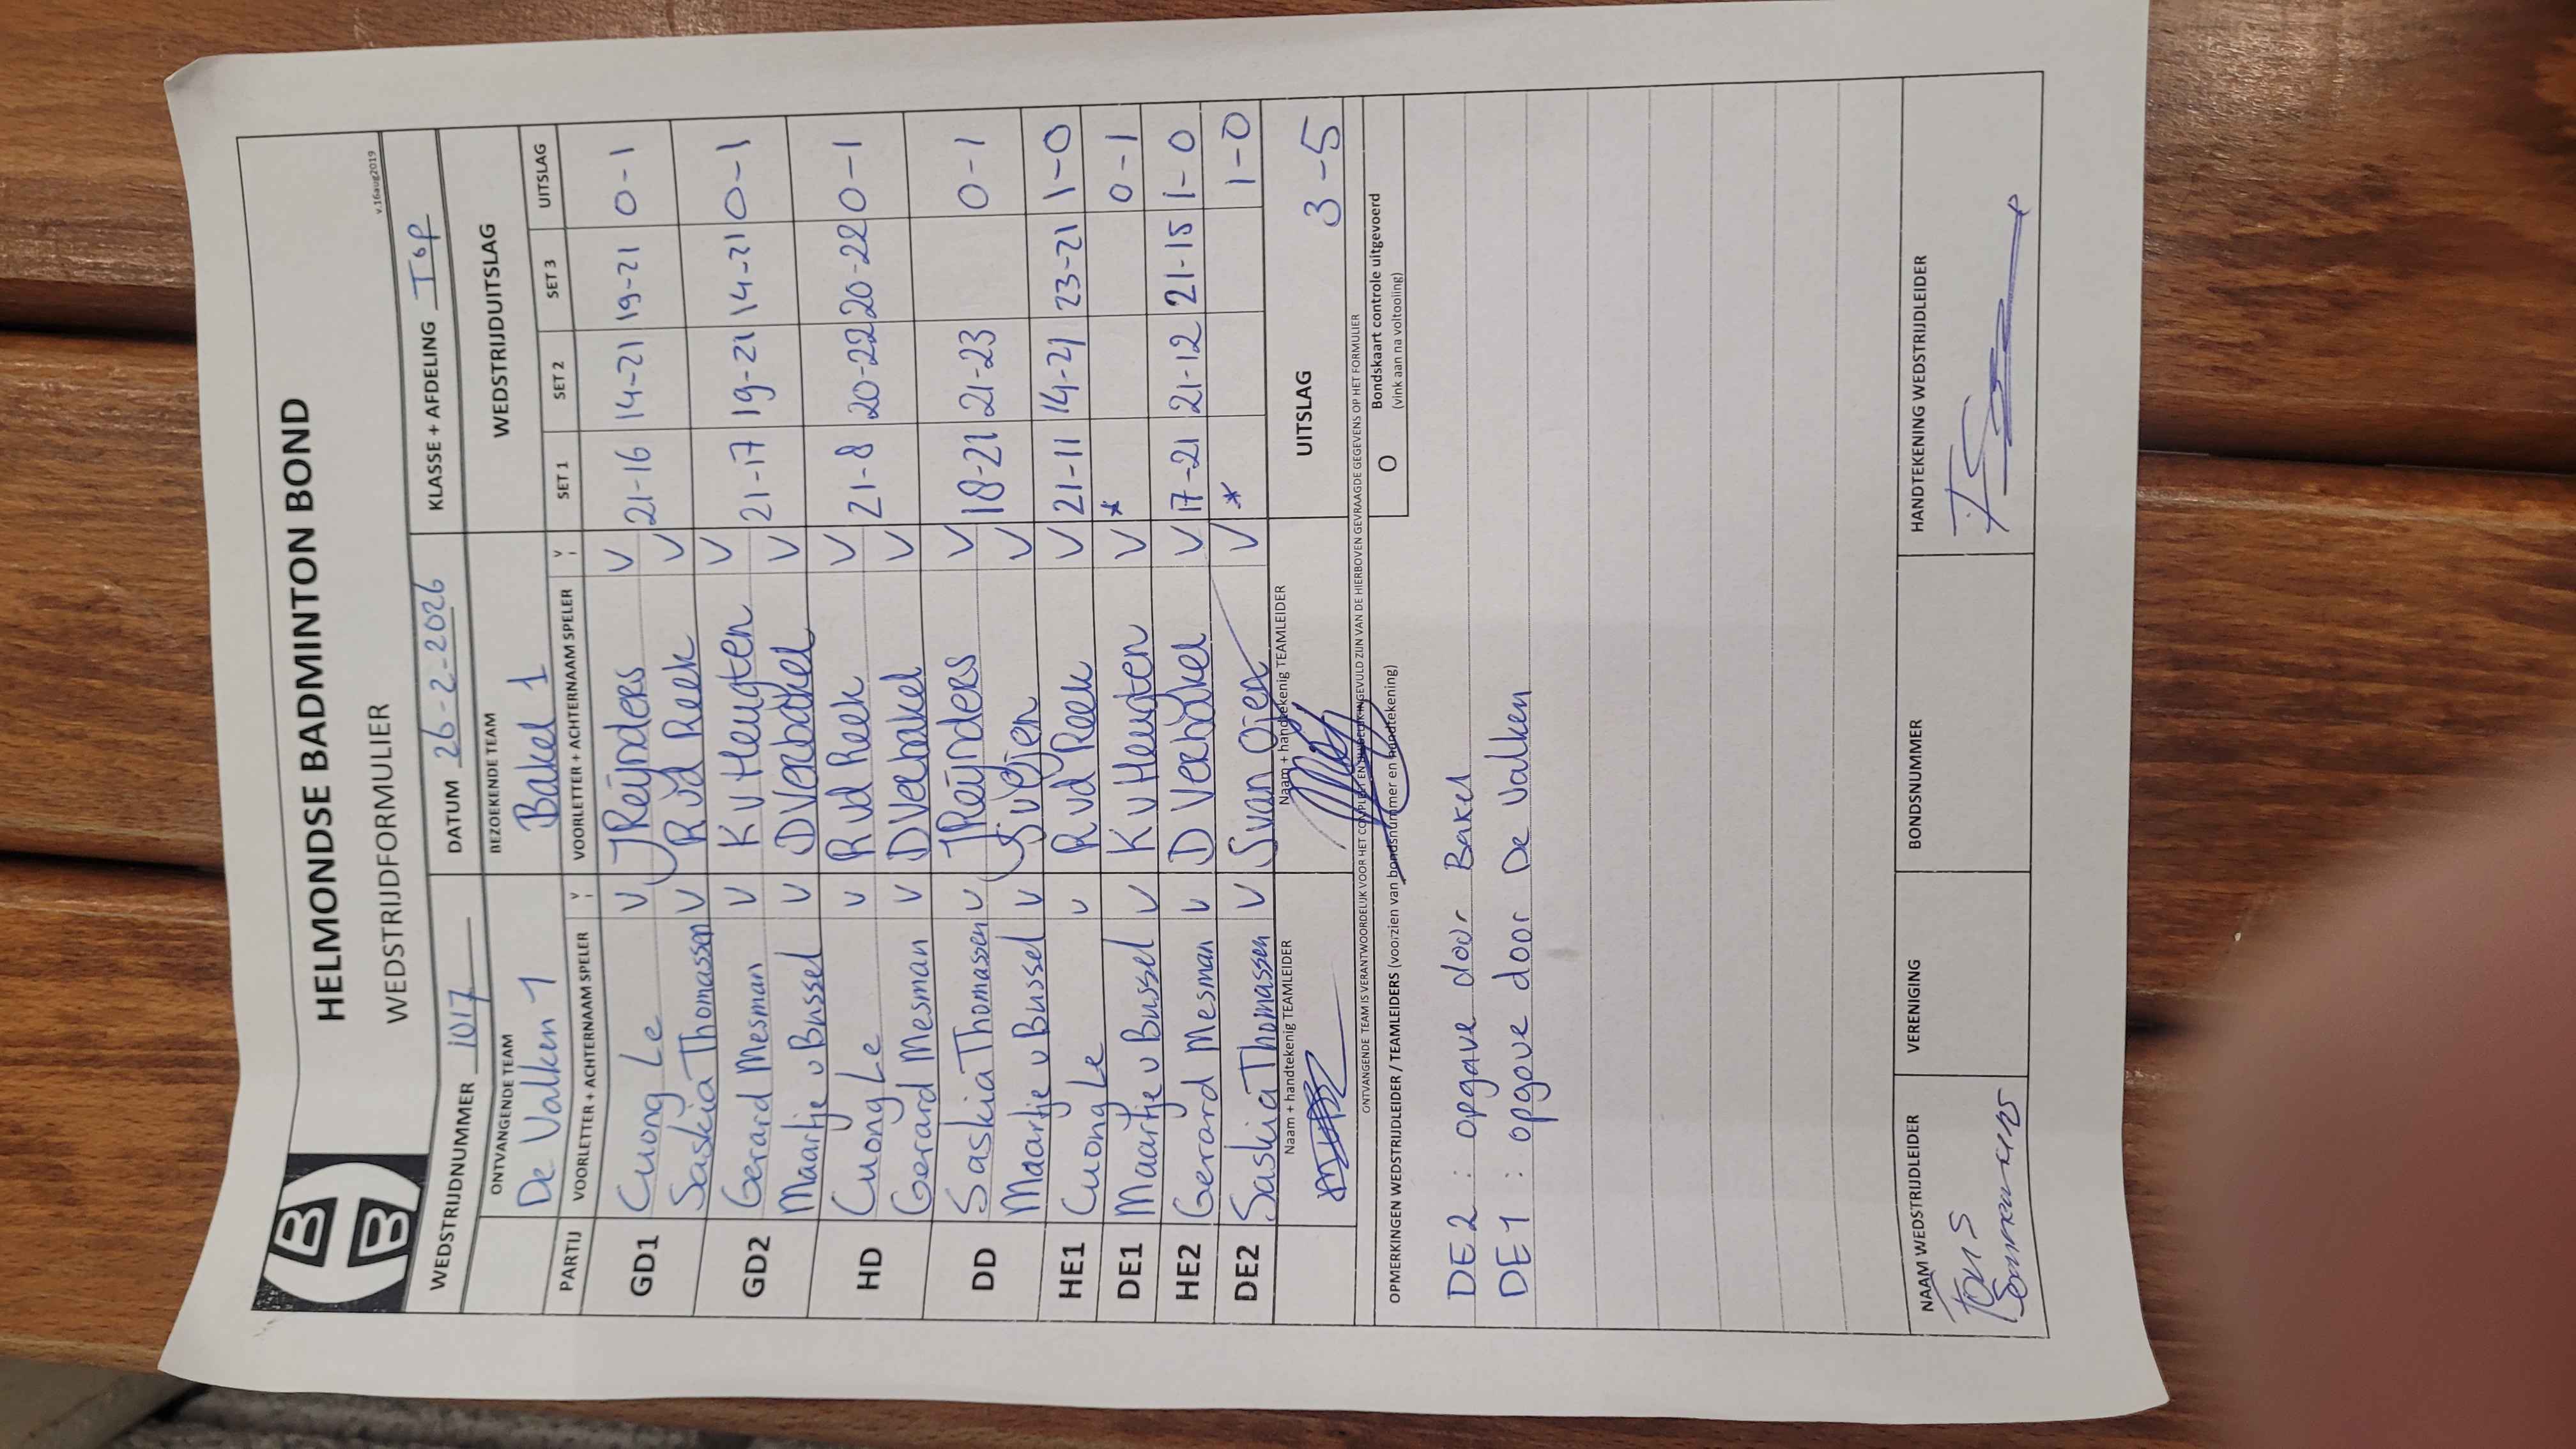 HELMONDSE BADMINTON BOND
WEDSTRIJDFORMULIER
v.16aug2019
WEDSTRIJDNUMMER 1017 DATUM 26-2-2026 KLASSE + AFDELING Top
ONTVANGENDE TEAM BEZOEKENDE TEAM WEDSTRIJDUITSLAG
De Valken 1 Bakel 1
PARTIJ VOORLETTER + ACHTERNAAM SPELER V VOORLETTER + ACHTERNAAM SPELER V SET 1 SET 2 SET 3 UITSLAG
GD1 Cuong Le V J Reijnders V 21-16 14-21 19-21 0-1
Saskia Thomassen V R vd Reek V
GD2 Gerard Mesman V K v Heugten V 21-17 19-21 14-21 0-1
Maartje v Bussel V D Verbakel V
HD Cuong Le V R vd Reek V 21-8 20-22 20-22 0-1
Gerard Mesman V D Verbakel V
DD Saskia Thomassen V J Reijnders V 18-21 21-23 0-1
Maartje v Bussel V S v Ojen V
HE1 Cuong Le V R vd Reek V 21-11 14-21 23-21 1-0
DE1 Maartje v Bussel V K v Heugten V * 0-1
HE2 Gerard Mesman V D Verbakel V 17-21 21-12 21-15 1-0
DE2 Saskia Thomassen V S van Ojen V * 1-0
Naam + handtekenig TEAMLEIDER Naam + handtekenig TEAMLEIDER UITSLAG 3-5
ONTVANGENDE TEAM IS VERANTWOORDELIJK VOOR HET COMPLEET EN INGEVULD ZIJN VAN DE HIERBOVEN GEVRAAGDE GEGEVENS OP HET FORMULIER
OPMERKINGEN WEDSTRIJDLEIDER / TEAMLEIDERS (voorzien van bondsnummer en handtekening) O Bondskaart controle uitgevoerd
(vink aan na voltooiing)
DE2 : opgave door Bakel
DE1 : opgave door De Valken
NAAM WEDSTRIJDLEIDER VERENIGING BONDSNUMMER HANDTEKENING WEDSTRIJDLEIDER